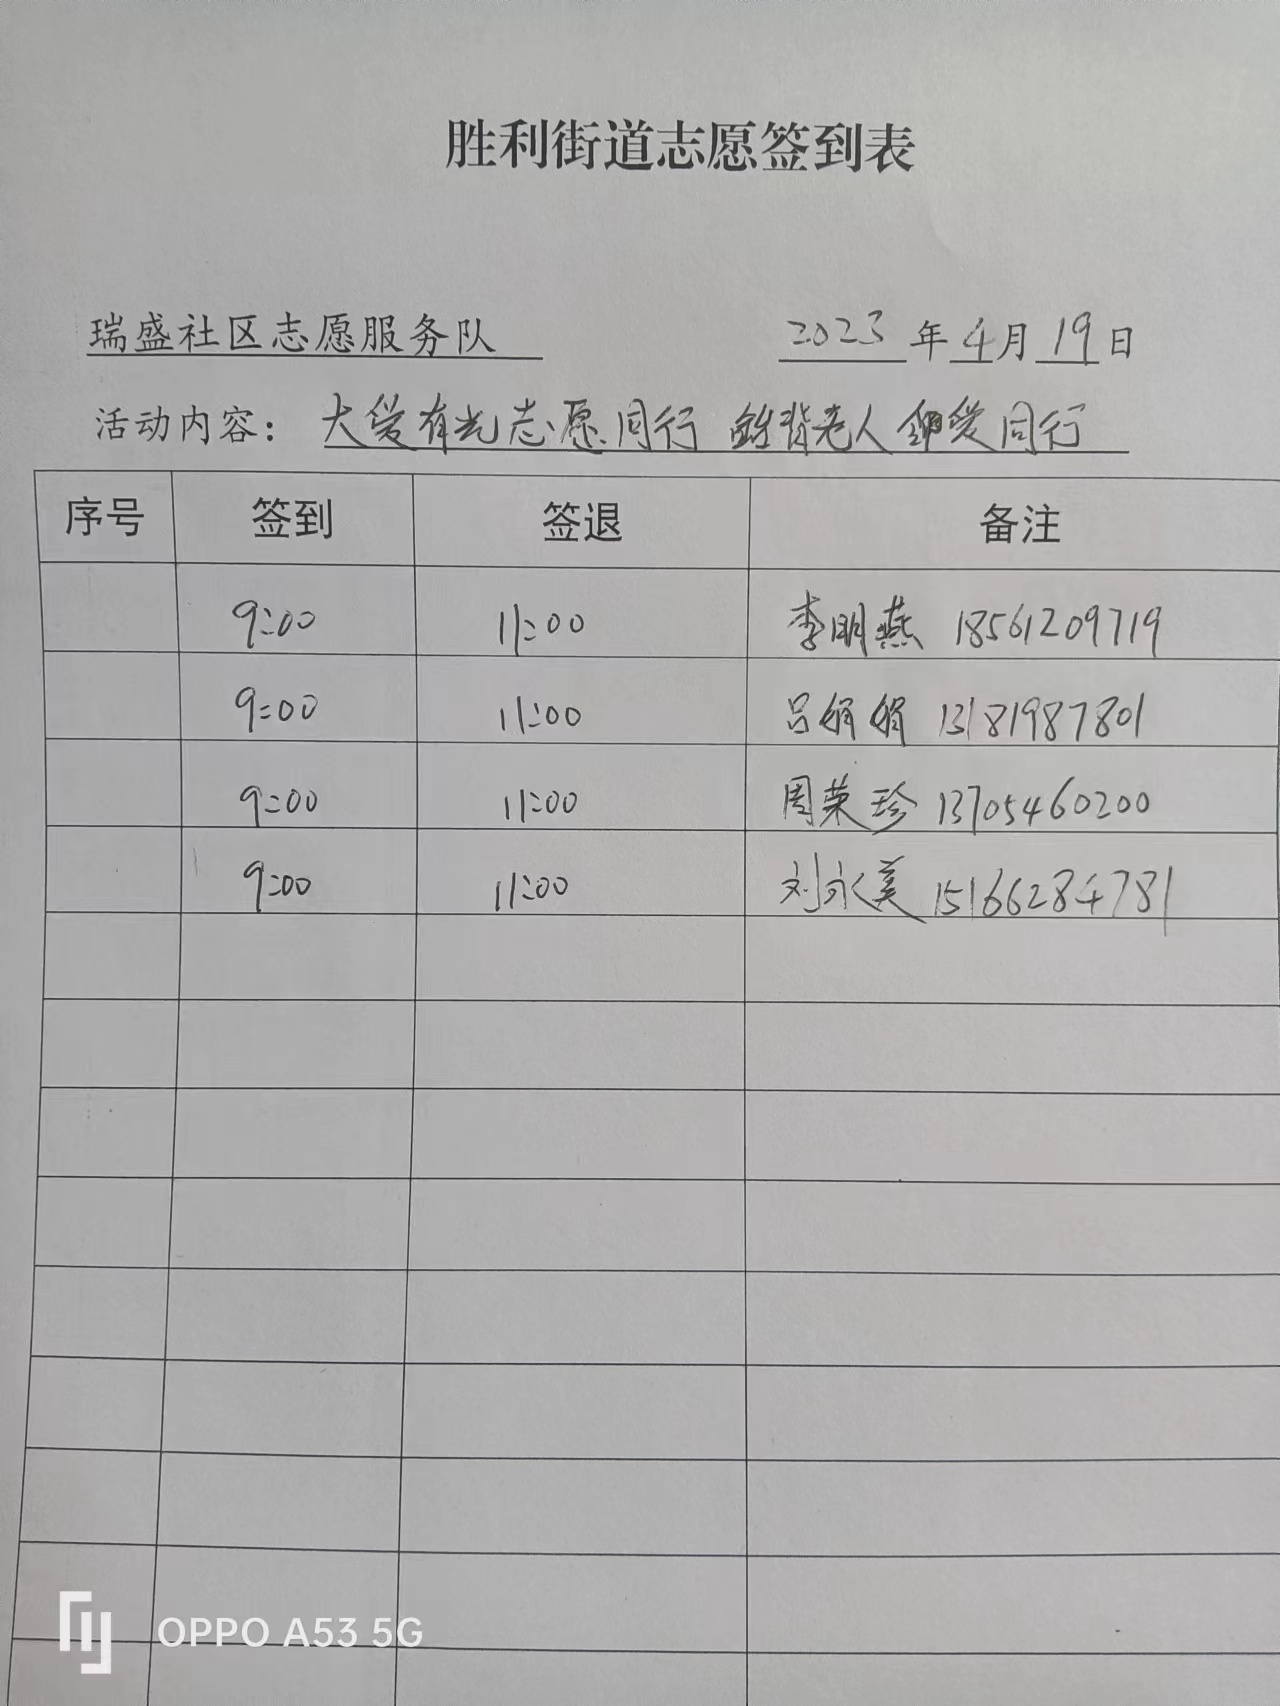 胜利街道志愿签到表
瑞盛社区志愿服务队 2023年4月19日
活动内容：大爱有光志愿同行 鲐背老人
爱同行
序号 签到 签退 备注
9:00 11:00 李明燕 18561209719
9:00 11:00 吕娟娟 13181987801
9:00 11:00 周荣珍 13705460200
9:00 11:00 刘永美 15166284781
OPPO A53 5G